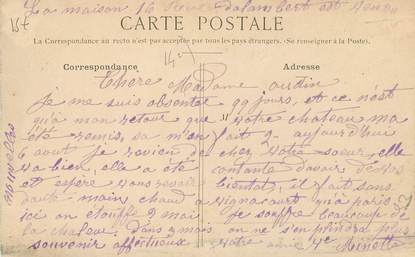 La maison 16 rue dalambert est vendu
15f
CARTE POSTALE
La Correspondance au recto n'est pas acceptée par tous les pays étrangers. (Se renseigner à la Poste).
Correspondance
Adresse
Chere Madame audin
je me suis absentai qq jours, et ce n'est
qu'a mon retour que votre chateau ma
été remis, sa m'en fait q aujourd'hui
6 aout je revien de cher votre soeur, elle
va bien, elle a été contante davoir de vos
nouvelles
et espere vous revoir bientot, il fait sans
doute main chaud a vignacourt qu'a paris
ici on etouffe moi je souffre beaucoup de
la chaleur. Dans 2 mois on ne s'en plaindra plus
souvenir affectueux votre amie Minette